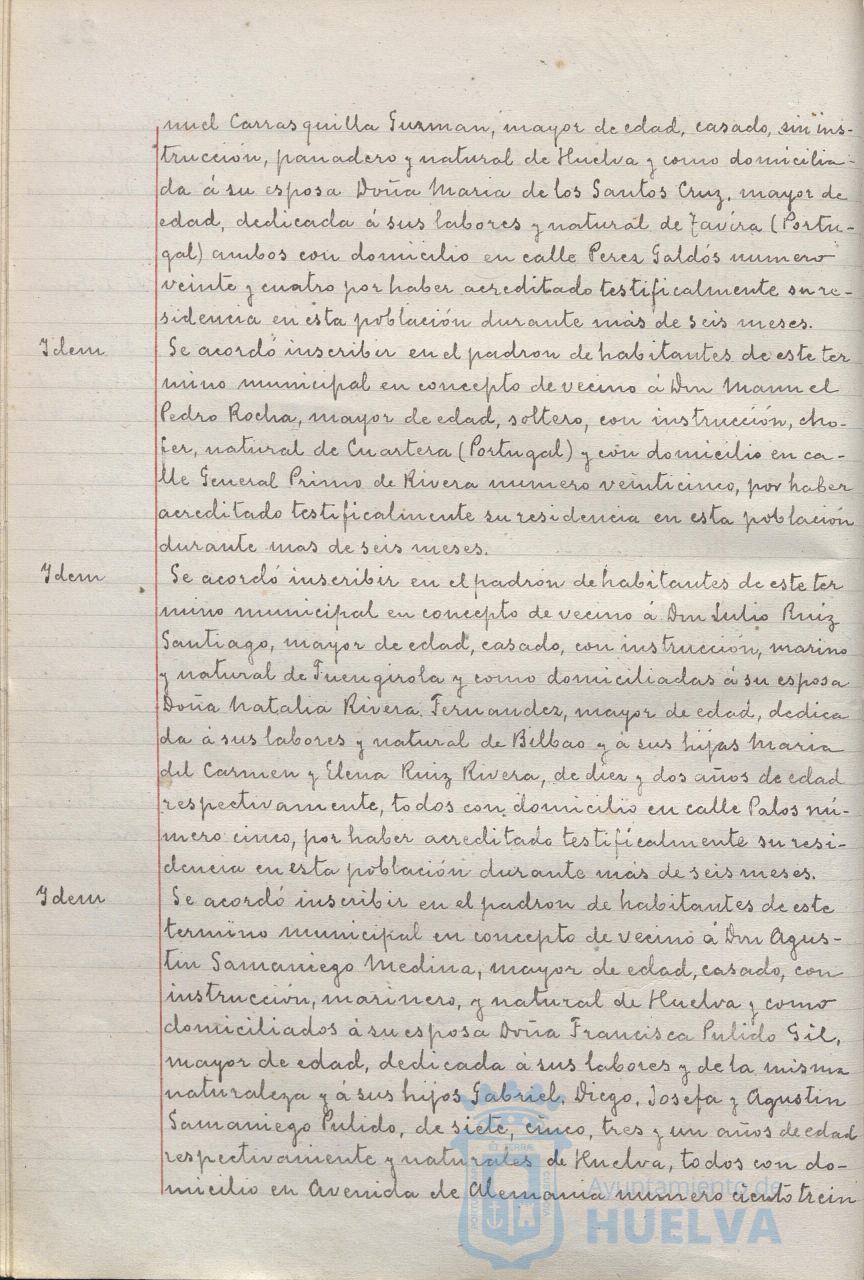 nuel Carrasquilla Guzman, mayor de edad, casado, sin ins-
trucción, panadero y natural de Huelva y como domicilia-
da á su esposa Doña Maria de los Santos Cruz, mayor de
edad, dedicada á sus labores y natural de Tavira (Portu-
gal) ambos con domicilio en calle Perez Galdós numero
veinte y cuatro por haber acreditado testificalmente su re-
sidencia en esta población durante más de seis meses.
Idem Se acordó inscribir en el padron de habitantes de este ter
mino municipal en concepto de vecino á Don Manuel
Pedro Rocha, mayor de edad, soltero, con instrucción, cho-
fer, natural de Cuartera (Portugal) y con domicilio en ca-
lle General Primo de Rivera numero veinticinco, por haber
acreditado testificalmente su residencia en esta población
durante mas de seis meses.
Idem Se acordó inscribir en el padrón de habitantes de este ter
mino municipal en concepto de vecino á Don Julio Ruiz
Santiago, mayor de edad, casado, con instrucción, marino
y natural de Fuengirola y como domiciliadas á su esposa
Doña Natalia Rivera Fernandez, mayor de edad, dedica
da á sus labores y natural de Bilbao y á sus hijas Maria
del Carmen y Elena Ruiz Rivera, de diez y dos años de edad
respectivamente, todos con domicilio en calle Palos nú-
mero cinco, por haber acreditado testificalmente su resi-
dencia en esta población durante más de seis meses.
Idem Se acordó inscribir en el padron de habitantes de este
termino municipal en concepto de vecino á Don Agus-
tin Samaniego Medina, mayor de edad, casado, con
instrucción, marinero, y natural de Huelva y como
domiciliados á su esposa Doña Francisca Pulido Gil,
mayor de edad, dedicada á sus labores y de la misma
naturaleza y á sus hijos Gabriel, Diego, Josefa y Agustin
Samaniego Pulido, de siete, cinco, tres y un años de edad
respectivamente y naturales de Huelva, todos con do-
micilio en Avenida de Alemania numero ciento trein
Ayuntamiento de
HUELVA